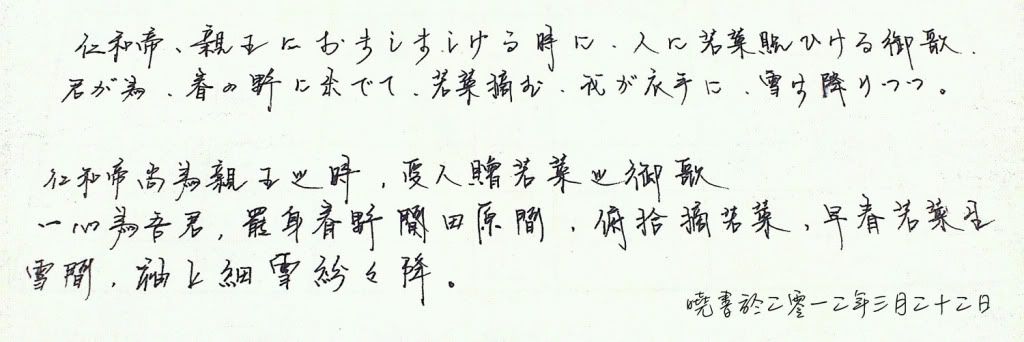 仁和帝、親王におましましける時に、人に若菜賜ひける御歌、
君が為、春の野に出でて、若菜摘む、我が衣手に、雪は降りつつ。
仁和帝尚為親王之時，受人贈若菜之御歌
一心為吾君，置身春野閒田原間，俯拾摘若菜，早春若菜呈
雪間，袖上細雪紛々降。
曉書於二零一二年三月二十二日